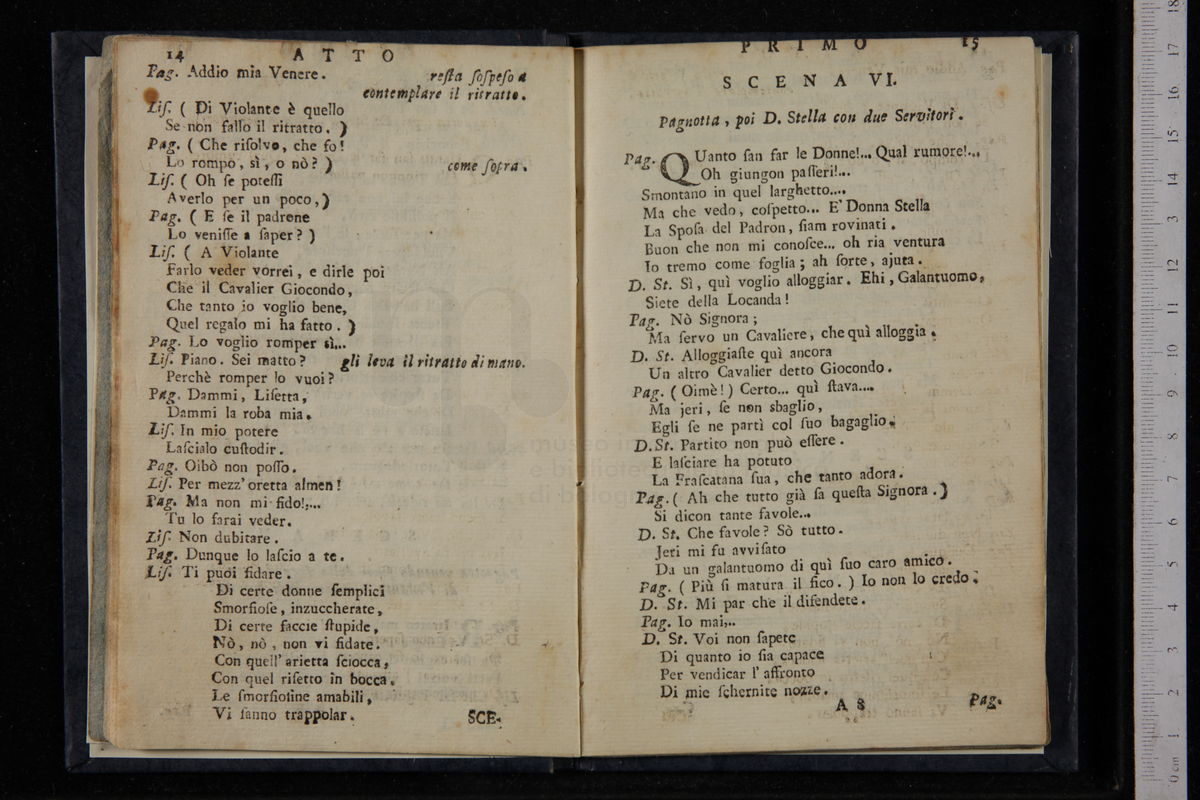 14 ATTO
Pag. Addio mia Venere. resta sospeso a
contemplare il ritratto.
Lis. ( Di Violante è quello
Se non fallo il ritratto. )
Pag. ( Che risolvo, che fo!
Lo rompo, sì, o nò? ) come sopra.
Lis. ( Oh se potessi
Averlo per un poco, )
Pag. ( E se il padrone
Lo venisse a saper? )
Lis. ( A Violante
Farlo veder vorrei, e dirle poi
Che il Cavalier Giocondo,
Che tanto io voglio bene,
Quel regalo mi ha fatto. )
Pag. Lo voglio romper sì...
Lis. Piano. Sei matto? gli leva il ritratto di mano.
Perchè romper lo vuoi?
Pag. Dammi, Lisetta,
Dammi la roba mia.
Lis. In mio potere
Lascialo custodir.
Pag. Oibò non posso.
Lis. Per mezz' oretta almen!
Pag. Ma non mi fido!...
Tu lo farai veder.
Lis. Non dubitare.
Pag. Dunque lo lascio a te.
Lis. Ti puoi fidare.
Di certe donne semplici
Smorfiose, inzuccherate,
Di certe faccie stupide,
Nò, nò, non vi fidate.
Con quell' arietta sciocca,
Con quel risetto in bocca.
Le smorfiosine amabili,
Vi fanno trappolar. SCE-
PRIMO 15
SCENA VI.
Pagnotta, poi D. Stella con due Servitori.
Pag. QUanto fan far le Donne!... Qual rumore!...
Oh giungon passeri!...
Smontano in quel larghetto....
Ma che vedo, cospetto... E' Donna Stella
La Sposa del Padron, siam rovinati.
Buon che non mi conosce... oh ria ventura
Io tremo come foglia; ah sorte, ajuta.
D. St. Sì, quì voglio alloggiar. Ehi, Galantuomo,
Siete della Locanda!
Pag. Nò Signora;
Ma servo un Cavaliere, che quì alloggia.
D. St. Alloggiaste quì ancora
Un altro Cavalier detto Giocondo.
Pag. ( Oimè! ) Certo... quì stava....
Ma jeri, se non sbaglio,
Egli se ne partì col suo bagaglio.
D. St. Partito non può essere.
E lasciare ha potuto
La Frascatana sua, che tanto adora.
Pag. ( Ah che tutto già sa questa Signora. )
Si dicon tante favole...
D. St. Che favole? Sò tutto.
Jeri mi fu avvisato
Da un galantuomo di quì suo caro amico.
Pag. ( Più si matura il fico. ) Io non lo credo.
D. St. Mi par che il difendete.
Pag. Io mai...
D. St. Voi non sapete
Di quanto io sia capace
Per vendicar l' affronto
Di mie schernite nozze.
A 8 Pag.